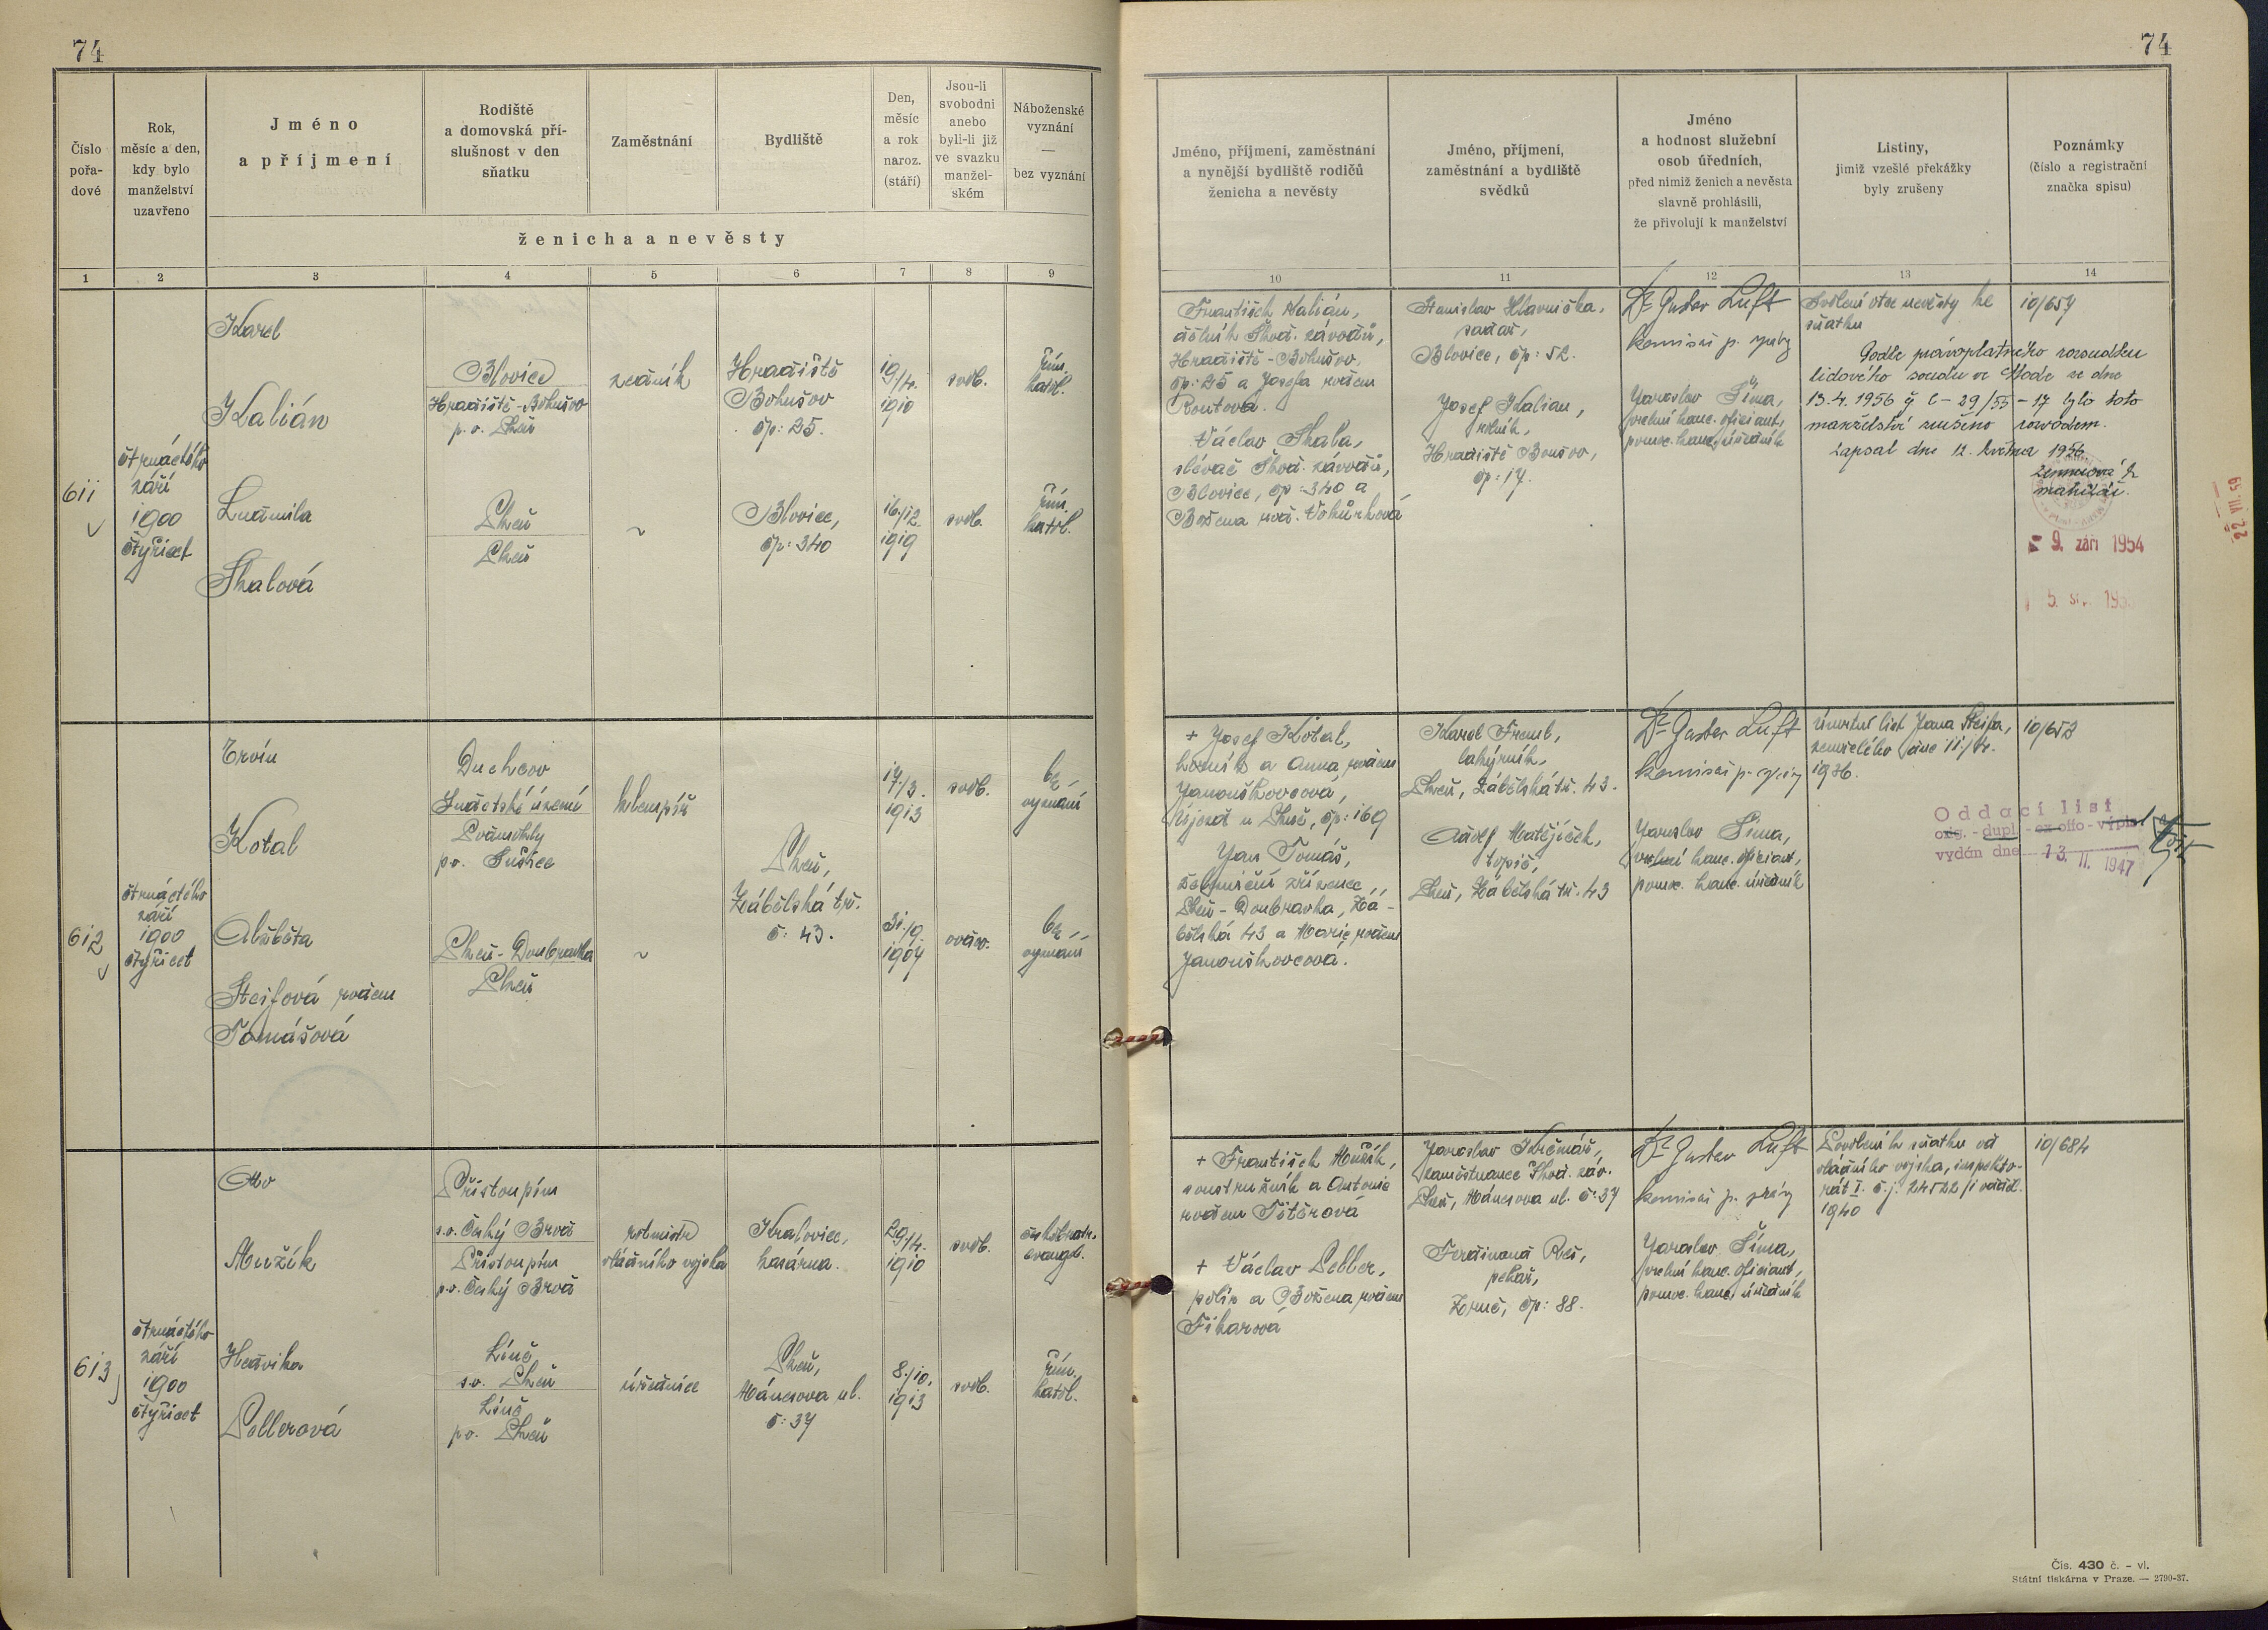 74
74
Číslo pořa- dové
Rok, měsíc a den, kdy bylo manželství uzavřeno
Jméno a příjmení
Rodiště a domovská pří- slušnost v den sňatku
Zaměstnání
Bydliště
Den, měsíc a rok naroz. (stáří)
Jsou-li svobodni anebo byli-li již ve svazku manžel- ském
Náboženské vyznání — bez vyznání
ženicha a nevěsty
Jméno, příjmení, zaměstnání a nynější bydliště rodičů ženicha a nevěsty
Jméno, příjmení, zaměstnání a bydliště svědků
Jméno a hodnost služební osob úředních, před nimiž ženich a nevěsta slavně prohlásili, že přivolují k manželství
Listiny, jimiž vzešlé překážky byly zrušeny
Poznámky (číslo a registrační značka spisu)
1 2 3 4 5 6 7 8 9 10 11 12 13 14
611
čtrnáctého
září
1900
čtyřicet
Karel
Kalián
Blovice
Hradiště-Bohušov
p. o. Plzeň
zedník
Hradiště
Bohušov
čp: 25.
19/4.
1910
svob.
řím.
katol.
Ludmila
Skalová
Plzeň
Plzeň
~
Blovice,
čp: 340
16/12.
1919
svob.
řím.
katol.
František Kalián,
dělník Škod. závodů,
Hradiště-Bohušov,
čp: 25 a Josefa rozen
Routová.
Václav Skala,
slévač Škod. závodů,
Blovice, čp: 340 a
Božena roz. Vokůrková
Stanislav Hlavnička,
sadař,
Blovice, čp: 52.
Josef Kalian,
rolník,
Hradiště Boušov,
čp: 17.
Dr Gustav Luft
komisař p. správy
Jaroslav Šíma,
vrchní kanc. oficiant,
pomoc. kanc. úředník
Svolení otce nevěsty ke
sňatku
10/657
Podle právoplatného rozsudku
lidového soudu ve dne
13. 4. 1956 č C-29/55-17 bylo toto
manželství zrušeno rozvodem.
Zapsal dne 12. května 1956
matrikář.
9. září 1954
22. VII. 59
612
čtrnáctého
září
1900
čtyřicet
Ervín
Kotal
Duchcov
Sudetské území
p.o. Sušice
klempíř
Plzeň,
Zábělská tř.
č: 43.
17/3.
1913
svob.
bez
vyznání
Alžběta
Steifová rozen
Tomášová
Plzeň-Doubravka
Plzeň
~
31./9
1907
ovdov.
bez
vyznání
+ Josef Kotal,
horník a Anna rozen
Janouškovcová,
u Plzně, čp: 169
Jan Tomáš,
železniční zřízenec,
Plzeň-Doubravka, Zá-
bělská 43 a Marie rozen
Janouškovcová.
Karel Freml,
lakýrník,
Plzeň, Zábělská tř. 43.
Adolf Matějíček,
topič,
Plzeň, Zábělská tř. 43
Dr Gustav Luft
komisař p. správy
Jaroslav Šíma,
vrchní kanc. oficiant,
pomoc. kanc. úředník
Úmrtní list Jana Steifa,
zemřelého dne 11./4.
1936.
10/652
Oddací list
orig. - dupl. - ex offo - výpis
vydán dne 13. II. 1947
613
čtrnáctého
září
1900
čtyřicet
Ivo
Mužík
Přistoupim
s.o. Český Brod
Přistoupim
p.o. Český Brod
rotmistr
vládního vojska
Kralovice,
kasárna.
29./4.
1910
svob.
českobratr.
evangel.
Hedvika
Pellerová
Líně
s.o. Plzeň
Líně
p.o. Plzeň
úřednice
Plzeň,
Mánesova ul.
č: 37
8./10.
1913
svob.
řím.
katol.
+ František Mužík,
soustružník a Antonie
rozen Têtêrová
+ Václav Peller,
polír a Božena rozen
Fíharová
Jaroslav Krěmář,
zaměstnanec Škod. záv.
Plzeň, Mánesova ul. č: 37
Ferdinand Reš,
pekař,
Zbruč, čp: 88.
Dr Gustav Luft
komisař p. správy
Jaroslav Šíma,
vrchní kanc. oficiant,
pomoc. kanc. úředník
Povolení k sňatku od
vládního vojska, inspekto-
rát I. č.j: 24522
1940
10/684
Čís. 430 č. - vl.
Státní tiskárna v Praze. — 2790-37.